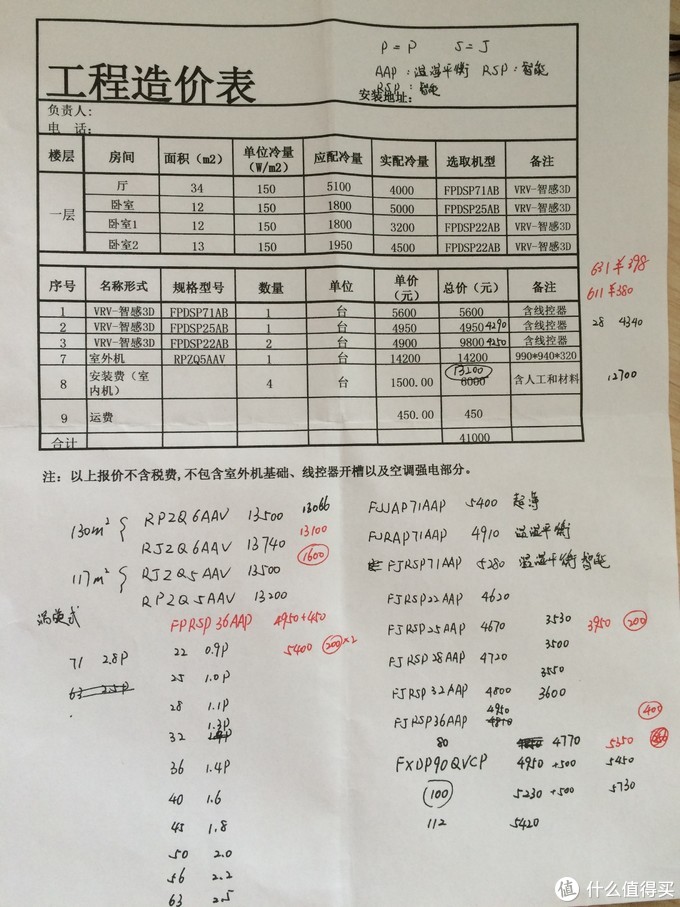 P=P S=J
AAP：温湿平衡 RSP：智能
工程造价表
安装地址：
负责人：
电 话：
楼层 房间 面积（m2） 单位冷量（W/m2） 应配冷量 实配冷量 选取机型 备注
一层 厅 34 150 5100 4000 FPDSP71AB VRV-智感3D
卧室 12 150 1800 5000 FPDSP25AB VRV-智感3D
卧室1 12 150 1800 3200 FPDSP22AB VRV-智感3D
卧室2 13 150 1950 4500 FPDSP22AB VRV-智感3D
631￥398
611￥380
序号 名称形式 规格型号 数量 单位 单价（元） 总价（元） 备注
1 VRV-智感3D FPDSP71AB 1 台 5600 5600 含线控器
2 VRV-智感3D FPDSP25AB 1 台 4950 4950 4290 含线控器 28 4340
3 VRV-智感3D FPDSP22AB 2 台 4900 9800 4250 含线控器
7 室外机 RPZQ5AAV 1 台 14200 14200 990*940*320
13200
8 安装费（室内机） 4 台 1500.00 6000 含人工和材料 12700
9 运费 450.00 450
合计 41000
注：以上报价不含税费,不包含室外机基础、线控器开槽以及空调强电部分。
130m² RPZQ6AAV 13500 13066
13100
RJZQ6AAV 13740 1600
117m² RJZQ5AAV 13500
RPZQ5AAV 13200
FPRSP36AAP 4950+450
5400 200×2
71 2.8P
63 2.5P
22 0.9P
25 1.0P
28 1.1P
1.3P
32
36 1.4P
40 1.6
45 1.8
50 2.0
56 2.2
63 2.5
FJJAP71AAP 5400
FJRAP71AAP 4910 温湿平衡
FJRSP71AAP 5280 温湿平衡智能
FJRSP22AAP 4620
FJRSP25AAP 4670 3530 3950 200
3500
FJRSP28AAP 4720
3550
FJRSP32AAP 4800 3600
4950
FJRSP36AAP 400
80 4770 5350
FXDP90QVCP 4950 +500 5450
100 5230 +500 5730
112 5420
值 什么值得买